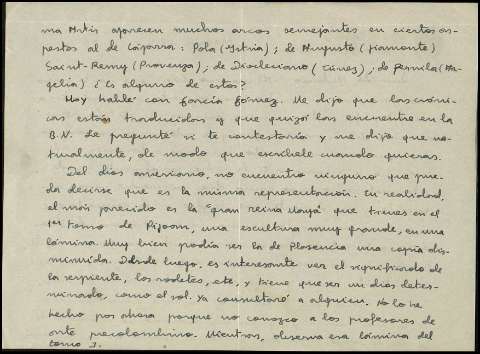 ma Artis aparecen muchos arcos semejantes en ciertos as-
pectos al de Cáparra: Pola (Istria); de Augusto (Piamonte)
Saint-Remy (Provenza); de Diocleciano (Túnez); de (Ar-
gelia) ¿Es alguno de estos?
Hoy hablé con García Gómez. Me dijo que las cróni-
cas están traducidas y que quizás las encuentre en la
B.N. Le pregunté si te contestaría y me dijo que na-
turalmente, de modo que escríbele cuando quieras.
Del dios americano, no encuentro ninguno que pue-
da decirse que es la misma representación. En realidad,
el más parecido es la "gran reina Maya" que tienes en el
1er tomo de Pijoan, una escultura muy grande, en una
lámina. Muy bien podía ser la de Plasencia una copia dis-
minuida. Desde luego, es interesante ver el significado de
la serpiente, los rodetes, etc, y tiene que ser un dios deter-
minado, como el sol. Ya consultaré a alguien. No lo he
hecho por ahora porque no conozco a los profesores de
arte precolombino. Mientras, observa esa lámina del
tomo I.